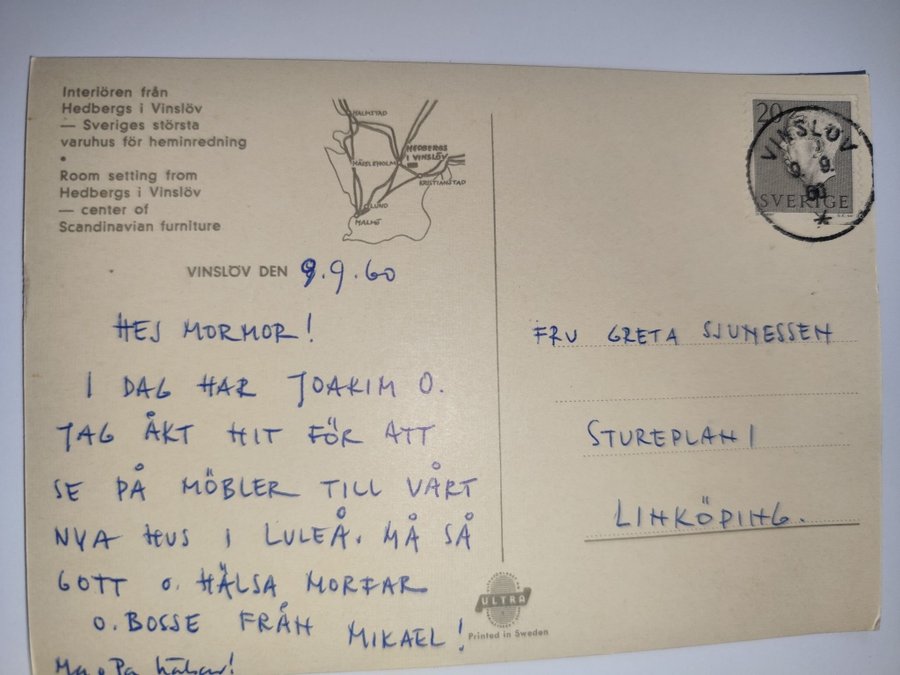 Interiören från
Hedbergs i Vinslöv
— Sveriges största
varuhus för heminredning
•
Room setting from
Hedbergs i Vinslöv
— center of
Scandinavian furniture
HALMSTAD
HÄSSLEHOLM
HEDBERGS
I VINSLÖV
KRISTIANSTAD
LUND
MALMÖ
VINSLÖV DEN 9.9.60
HEJ MORMOR!
I DAG HAR JOAKIM O.
JAG ÅKT HIT FÖR ATT
SE PÅ MÖBLER TILL VÅRT
NYA HUS I LULEÅ. MÅ SÅ
GOTT O. HÄLSA MORFAR
O. BOSSE FRÅN MIKAEL!
Ma o Pa hälsar!
20
SVERIGE
VINSLÖV
9.9.
60
FRU GRETA SJUNESSEN
STUREPLAN 1
LINKÖPING.
ULTRA
Printed in Sweden